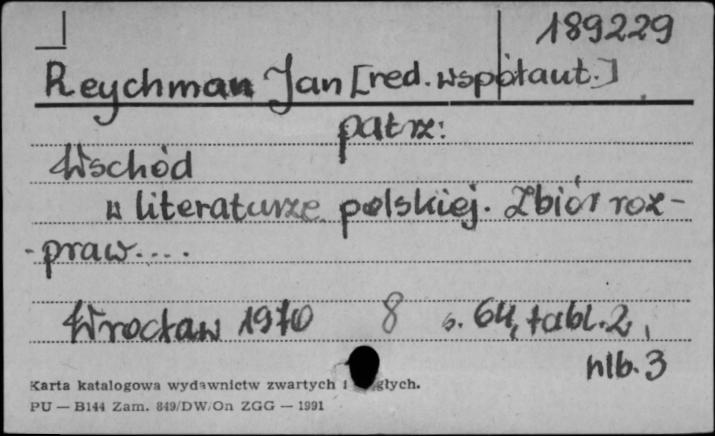 189229
Reychman Jan [red. współaut.]
patrz:
Wschód
w literaturze polskiej. Zbiór roz-
-praw....
Wrocław 1970 8 s. 64, tabl. 2,
nlb. 3
Karta katalogowa wydawnictw zwartych i głych.
PU — B144 Zam. 849/DW/On ZGG — 1991